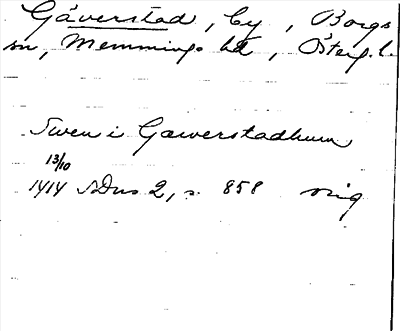 Gåverstad, by, Borgs
sn, Memmings hd, Östergl.
Swen i Gawerstadhum
13/10
1414 SDns 2, s. 858 orig